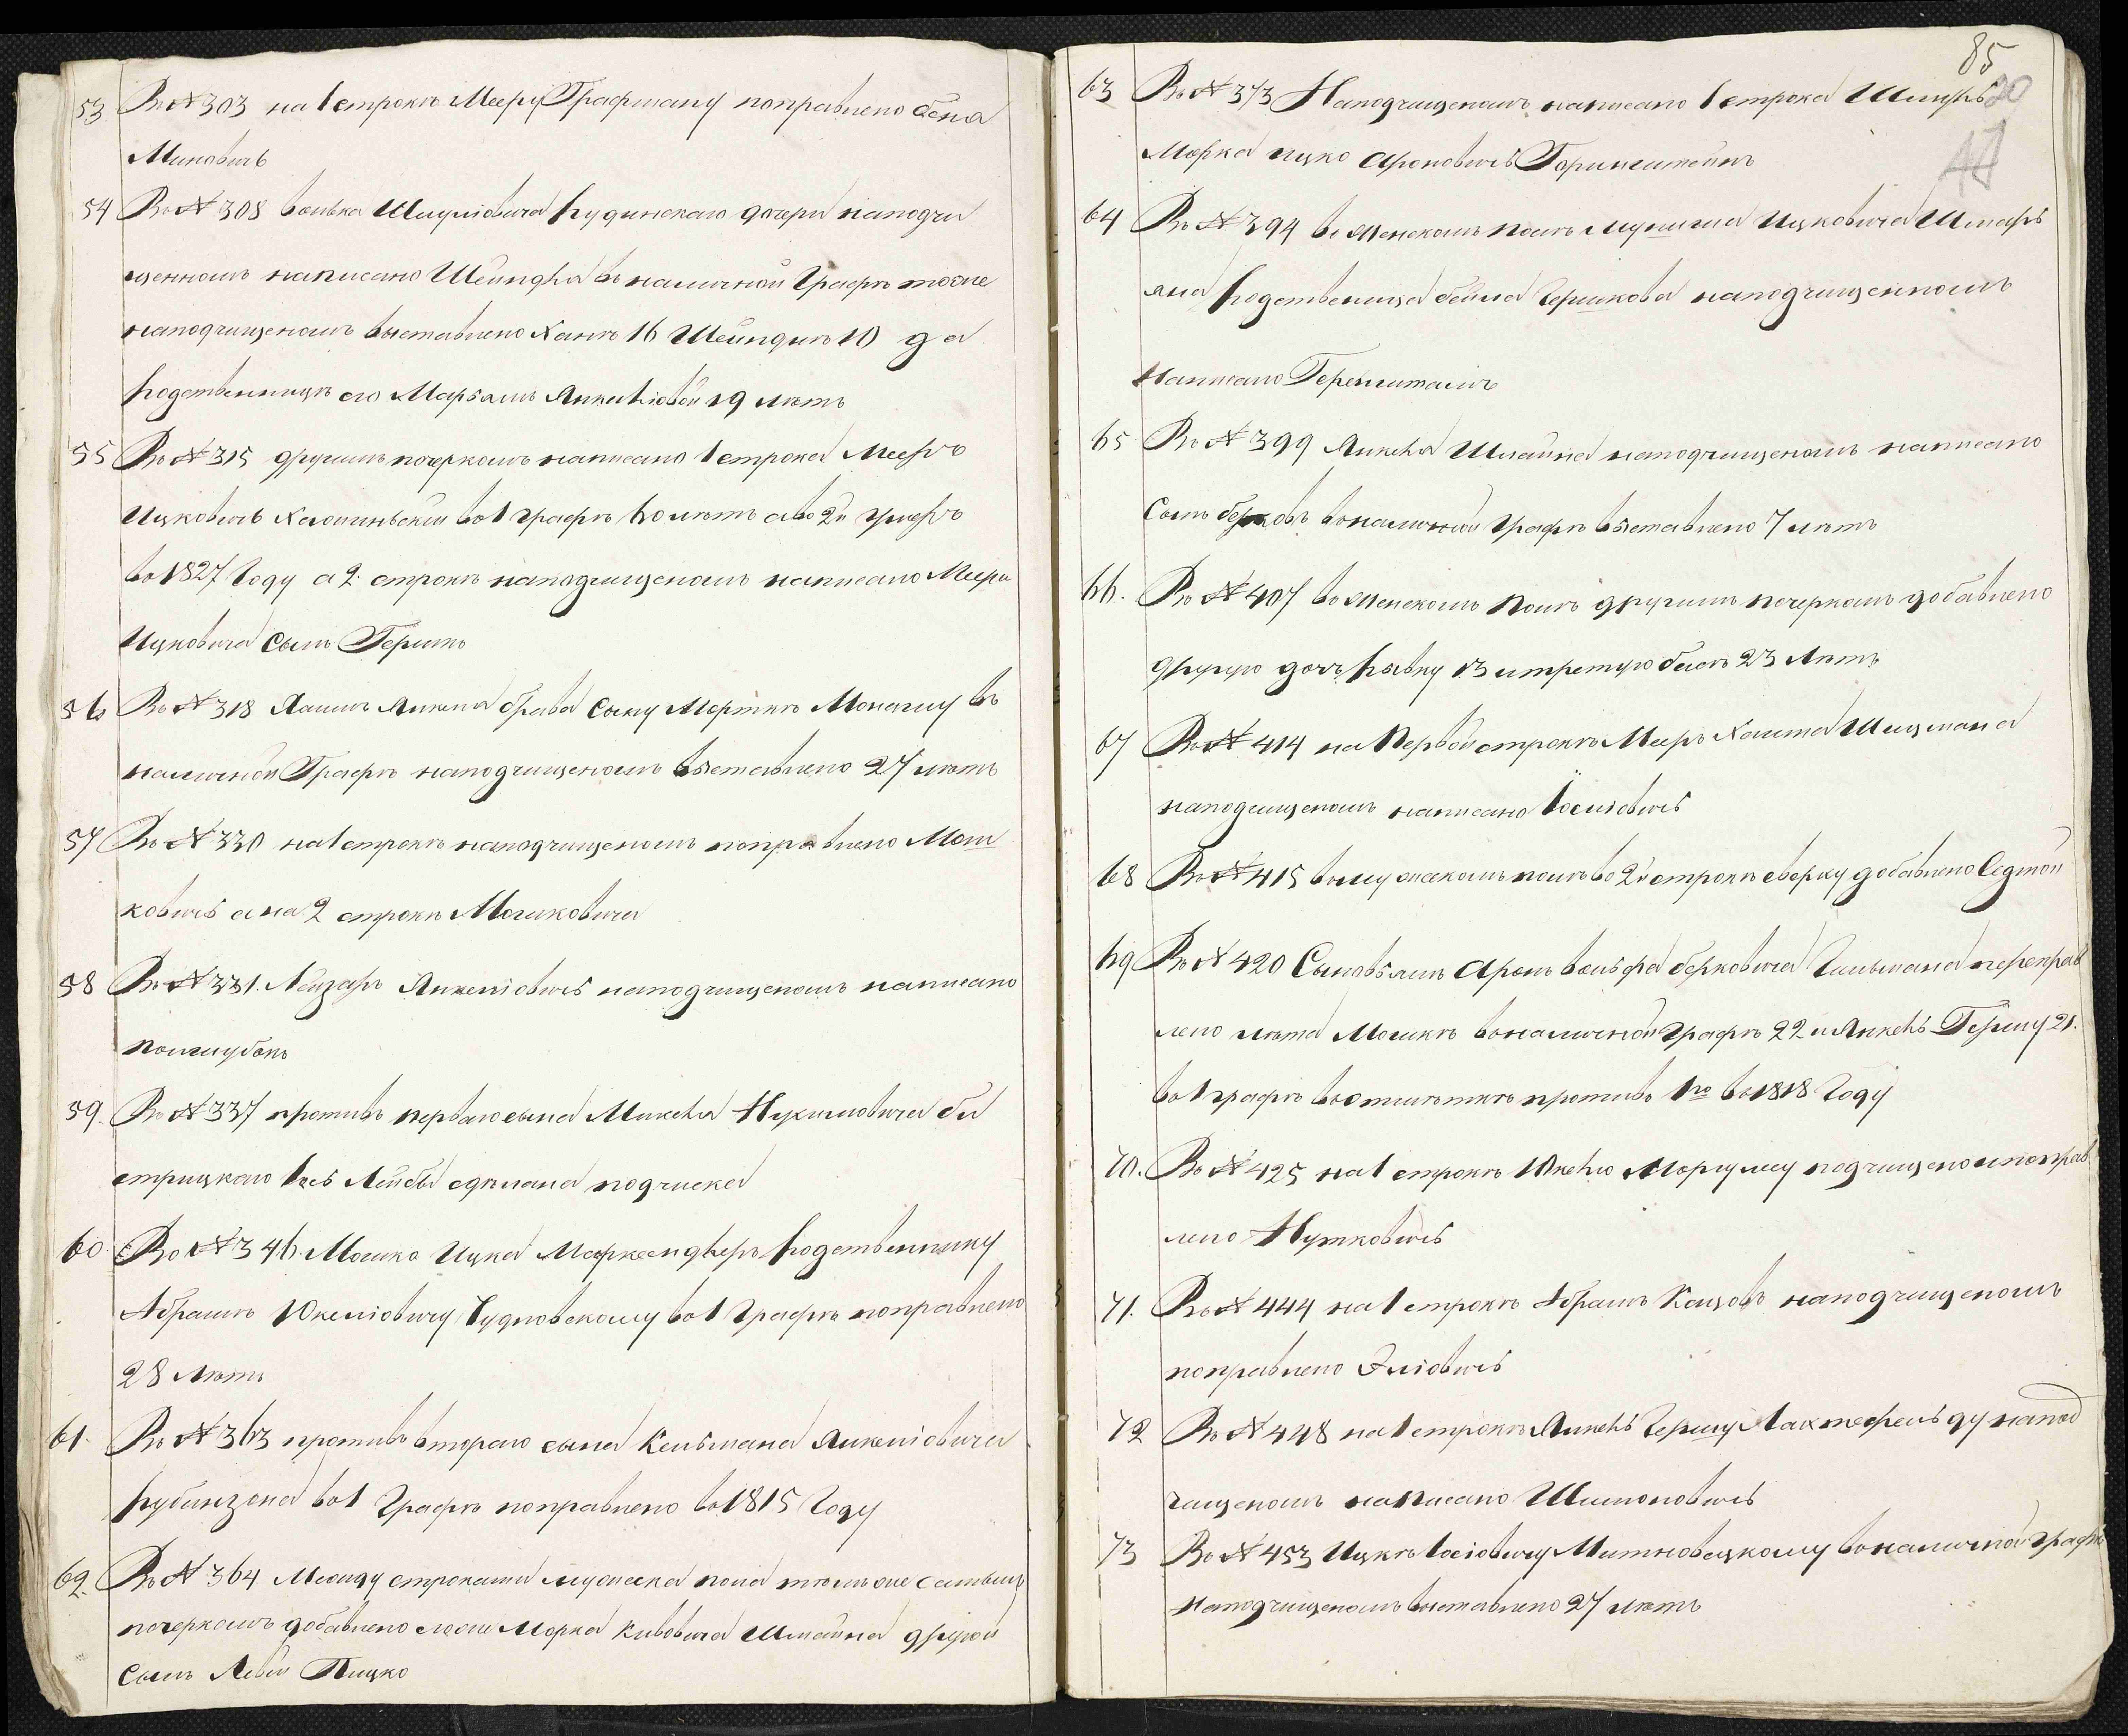 53 Въ № 303 на 1 строкѣ Мееру Графману поправлено Беня
Миновичь
54 Въ № 308 Волька Шмуліовича Рудинскаго дочери наподчи
щенномъ написано Шейндля въ наличной Графѣ тоже
наподчищеномъ выставлено Ханѣ 16 Шейндлѣ 10 да
Родственницѣ его Марьямъ Янкеліовой 19 лѣтъ
55 Въ № 315 другимъ почеркомъ написано 1 строка Мееръ
Ицковичь во 1 графѣ 60 лѣтъ а во 2й умеръ
въ 1827 Году а 2 строкѣ наподчищеномъ написано Меера
Ицковича Сынъ Гершко
56 Въ № 318 Хаимъ Янкеля Сыну Морткѣ Монашу въ
наличной Графѣ наподчищеномъ выставлено 27 лѣтъ
57 Въ № 330 на 1 строкѣ наподчищеномъ поправлено Мош
ковичь а на 2 строкѣ Мошковича
58 Въ № 331. Лейзаръ Янкеліовичь наподчищеномъ написано
59. Въ № 337 противъ перваго сына Микеля Нухимовича Би
стрицкаго Іось Лейбы сдѣлана подчиска
60. Въ № 346. Мошка Ицка Родственнику
Абрамѣ Юкеліовичу Чудновскому во 1 Графѣ поправлено
28 лѣтъ
61. Въ № 363 противъ втораго сына Кельмана Янкеліовича
Рубинзона во 1 Графѣ поправлено въ 1815 Году
62. Въ № 364 Между строками мужеска пола тѣмъ же самымъ
почеркомъ добавлено Морка Кивовича Шмайна другой
Сынъ Лейби Ицко
63 Въ № 373 Наподчищеномъ написано 1 строка Шмиръ
85
20
Морка ицко Ароновичь Горинштейнъ
64 Въ № 394 въ женскомъ полѣ Ицковича
Родственица Бейла Гершкова наподчищенномъ
Написано Геренштамъ
65 Въ № 399 Янкеля Шмайна наподчищеномъ написано
Сынъ Берковъ въ наличной Графѣ выставлено 7 лѣтъ
66. Въ № 407 въ женскомъ полѣ другимъ почеркомъ добавлено
другую дочь Рывку 13 и третую Басю 23 лѣтъ
67 Въ № 414 на Первой строкѣ Мееръ Хаима Шицмана
наподчищеномъ написано Іосиовичь
68 Въ № 415 въ мужескомъ полѣ во 2й строкѣ сверху добавлено Седмой
69 Въ № 420 Сыновьямъ Аронъ Вольфа Берковича Гильмана переправ
лено лѣта Мошкѣ въ наличной Графѣ 22 и Янкель Гершу 21.
во 1 графѣ въ отмѣткѣ противъ 1го въ 1818 Году
70. Въ № 425 на 1 строкѣ Юкелю подчищено и поправ
лено Нутковичь
71. Въ № 444 на 1 строкѣ Абрамъ Кацовъ наподчищеномъ
поправлено Эліовичь
72 Въ № 448 на 1 строкѣ Янкель Гершу Лахтефельду на под
чищеномъ написано Шимоновичь
73 Въ № 453 Ицкѣ Іосіовичу въ наличной графѣ
наподчищеномъ выставлено 27 лѣтъ